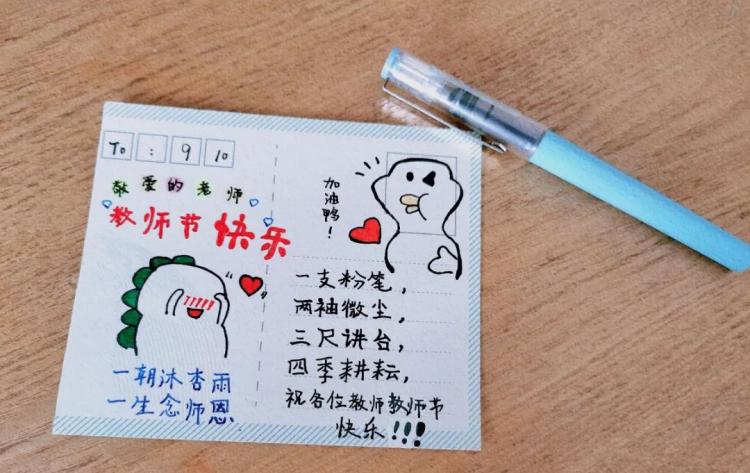 To : 9 10
敬爱的老师
教师节快乐
一朝沐杏雨
一生念师恩
加油鸭!
一支粉笔,
两袖微尘,
三尺讲台,
四季耕耘,
祝各位教师教师节
快乐!!!